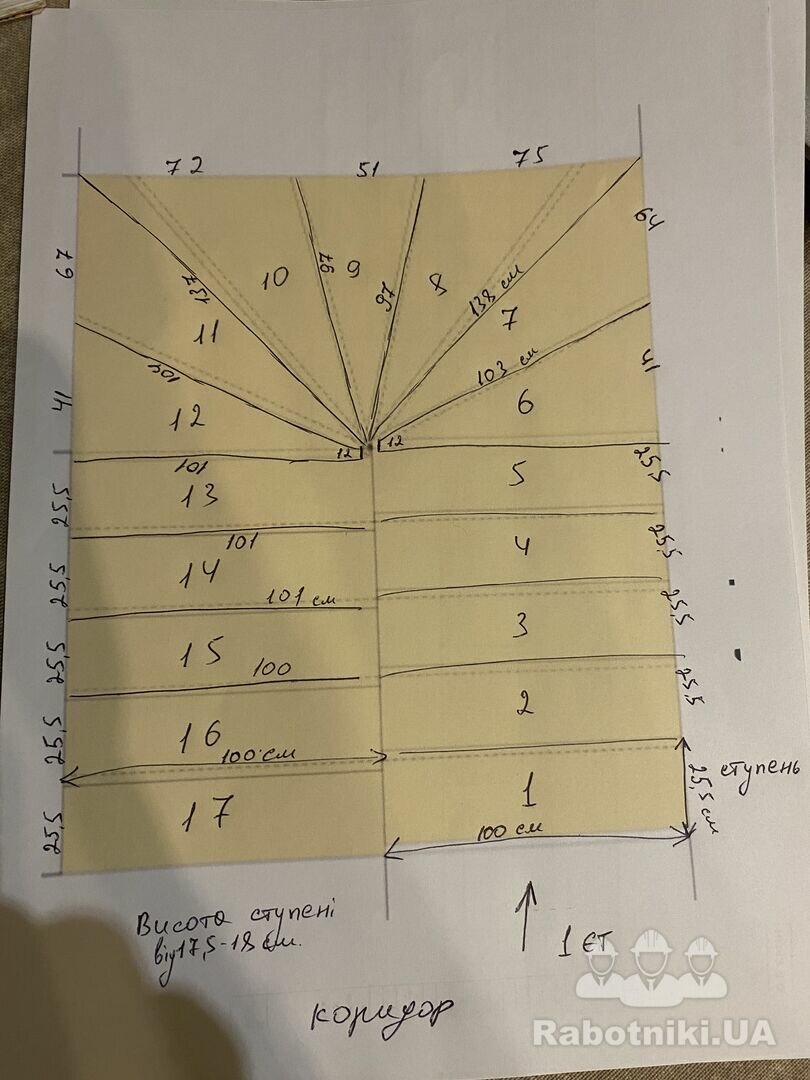 72 51 75
67
64
10
97
9
97
8
137
138 см
7
11
104
103 см
41
41
12
6
12
12
101
25,5
13
5
25,5
101
25,5
14
4
25,5
101 см
25,5
15
3
25,5
100
25,5
16
2
25,5
100 см
25,5
17
1
25,5 см
ступень
100 см
Висота ступені
від 17,5-18 см.
1 єт
коридор
Rabotniki.UA